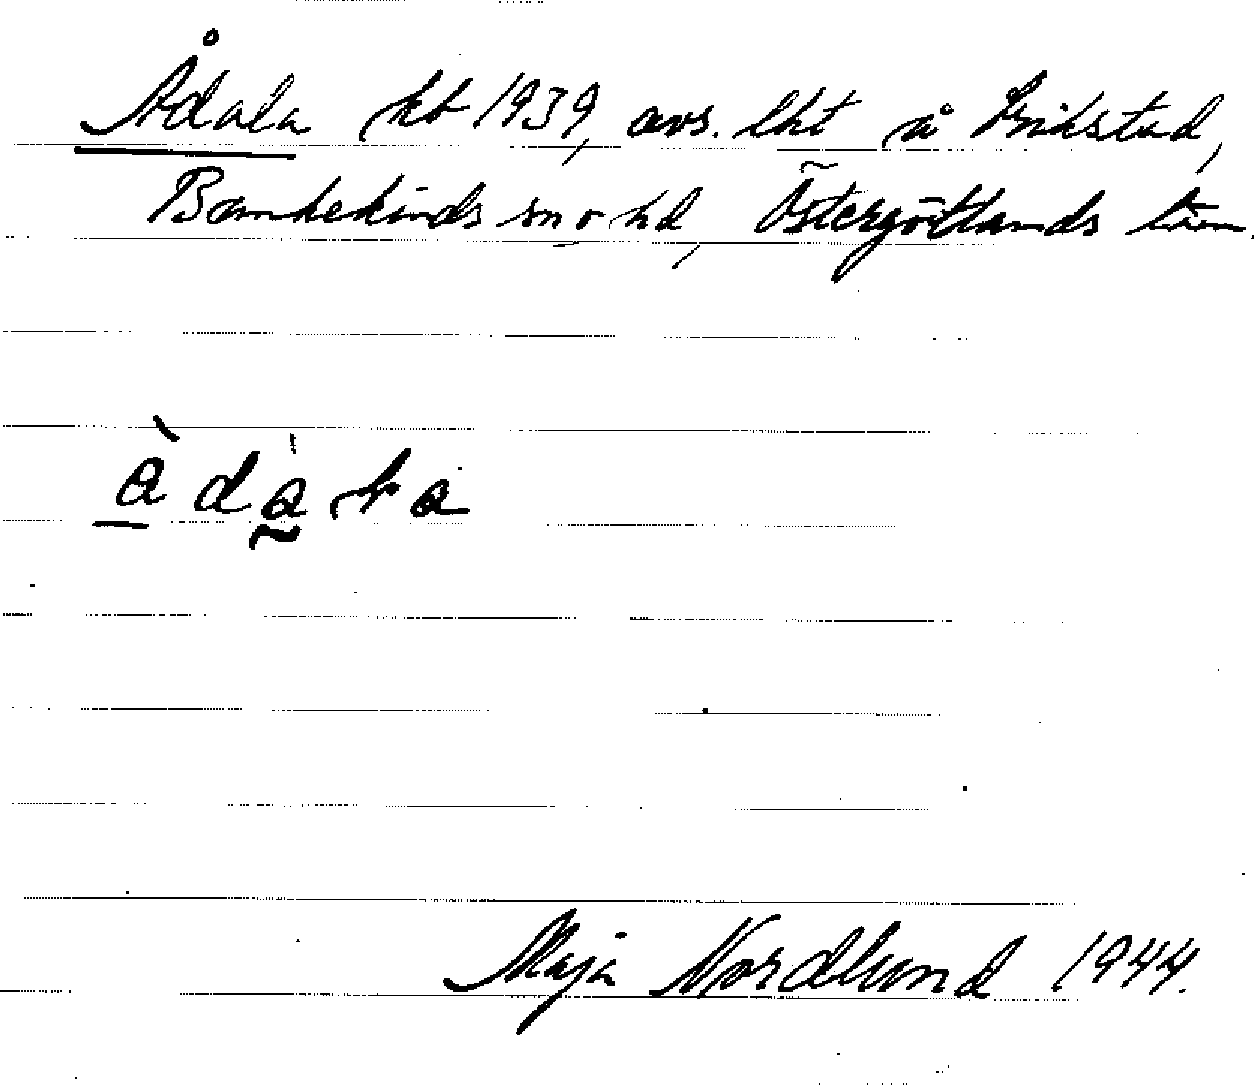 Ådala kb 1939, avs. lht å Erikstad,
Bankekinds sn o hd, Östergötlands län.
Maja Nordlund 1944.